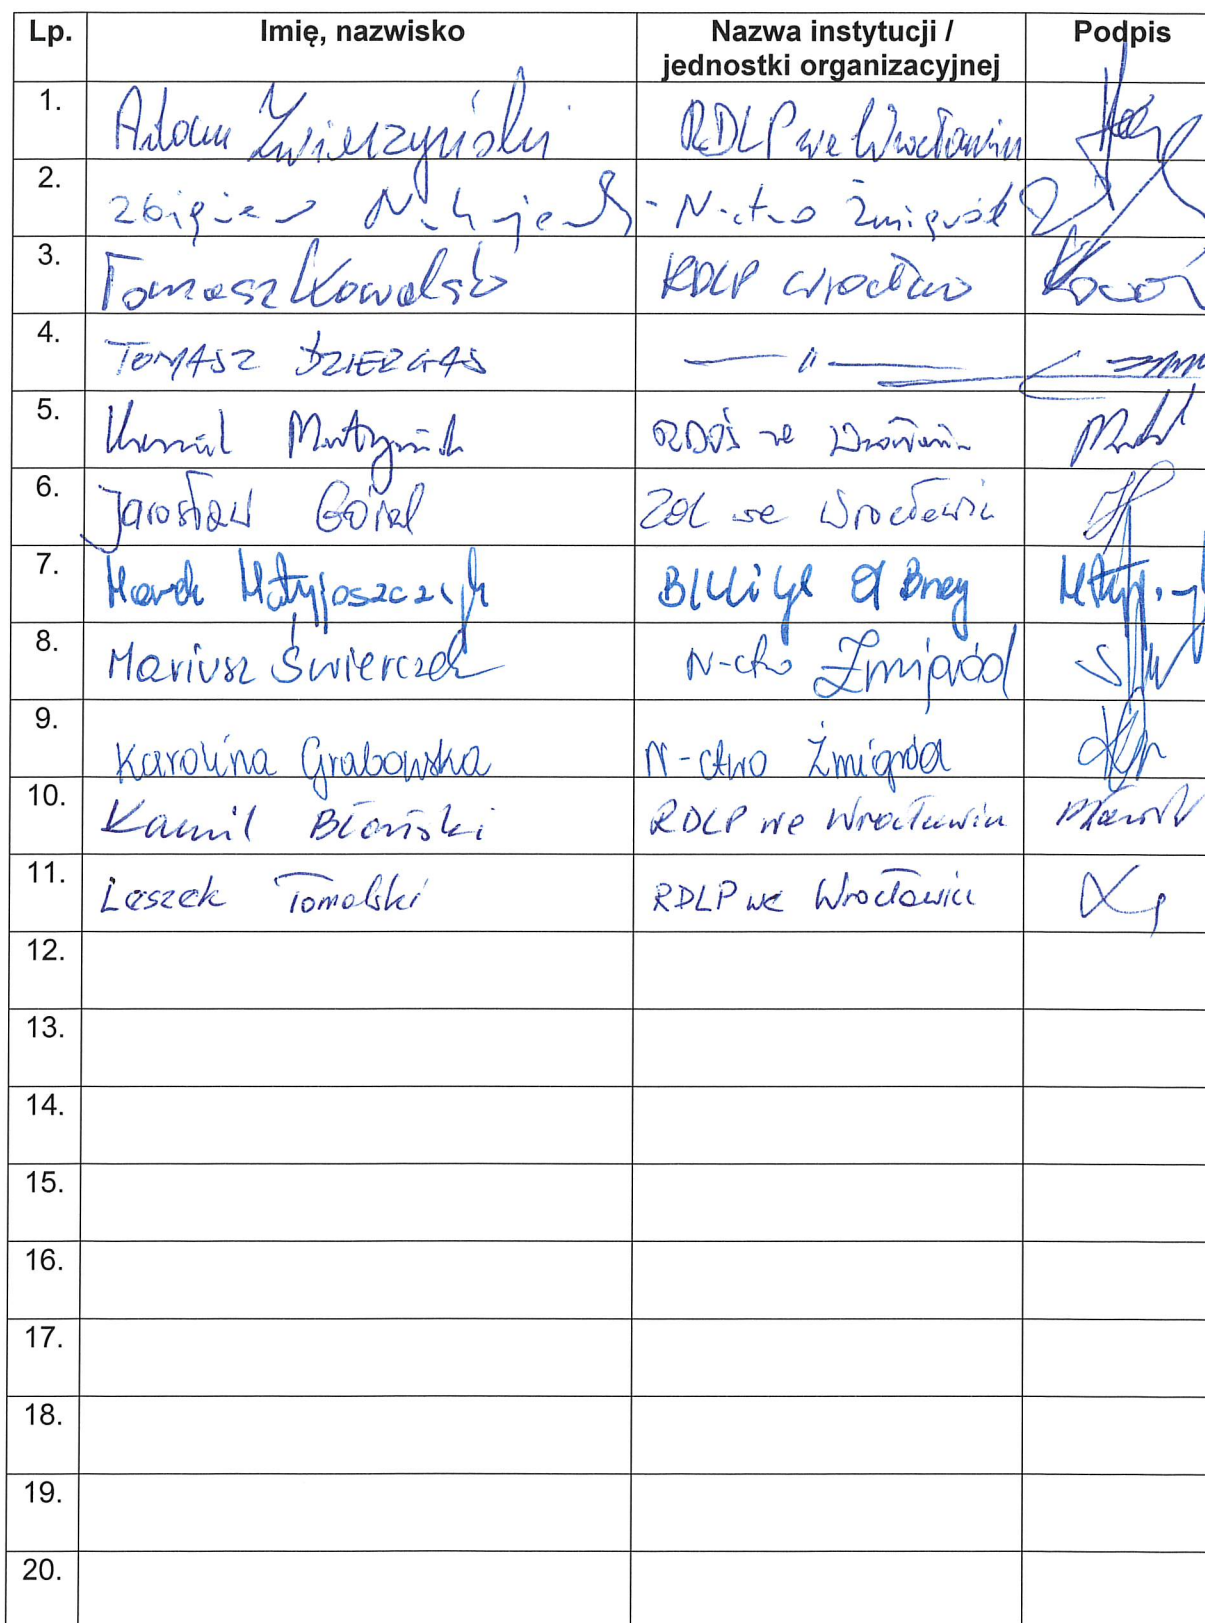 Lp. Imię, nazwisko Nazwa instytucji / Podpis
jednostki organizacyjnej
1. Adam Zwierzyński RDLP we Wrocławiu
2. Zbigniew N-ctwo Żmigród
3. Tomasz Kowalski RDLP Wrocław
4. TOMASZ — 〃 —
5. Kamil RDOŚ we Wrocławiu
6. Jarosław Góral ZOL we Wrocławiu
7. Marek Matyjaszczyk Brzeg
8. Mariusz Świerczek N-ctwo Żmigród
9. Karolina Grabowska N-ctwo Żmigród
10. Kamil Błoński RDLP we Wrocławiu
11. Leszek Tomalski RDLP we Wrocławiu
12.
13.
14.
15.
16.
17.
18.
19.
20.